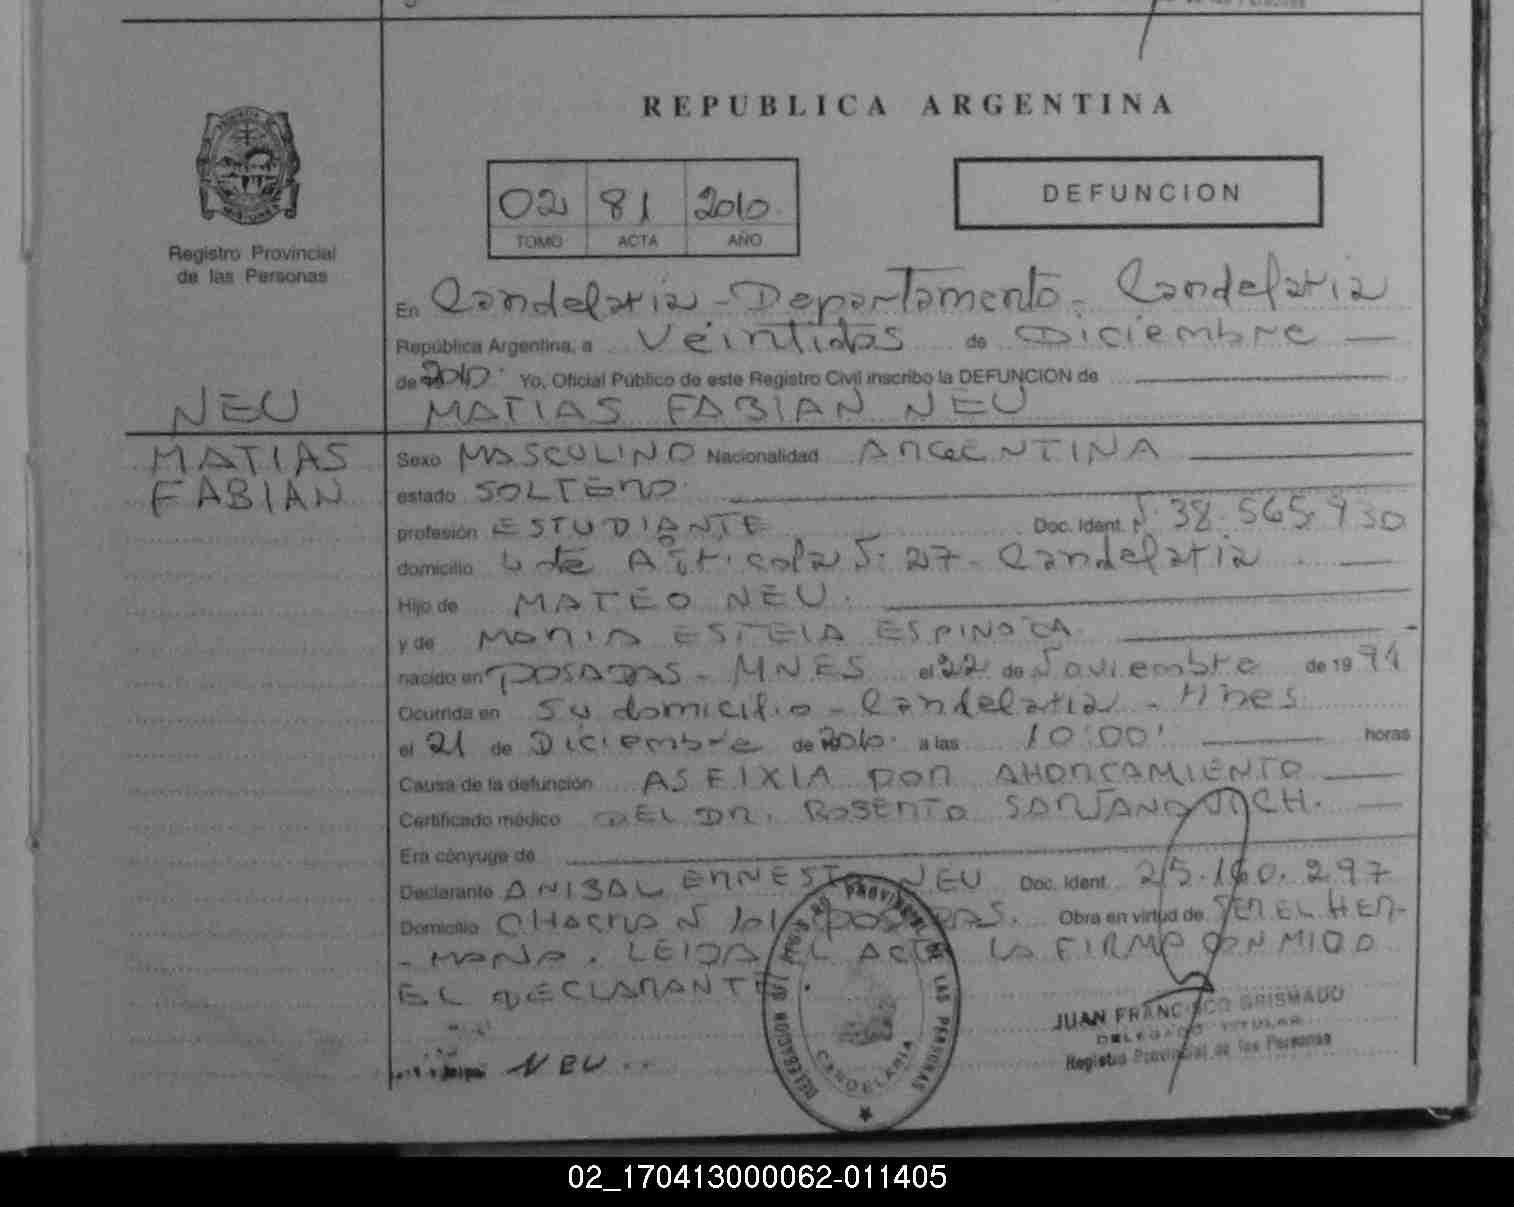 REPUBLICA ARGENTINA
02 81 2010
TOMO ACTA AÑO
DEFUNCION
Registro Provincial
de las Personas
En Candelaria - Departamento - Candelaria
República Argentina, a Veintidos de Diciembre
de 2010. Yo, Oficial Público de este Registro Civil inscribo la DEFUNCION de
NEU
MATIAS FABIAN NEU
MATIAS
FABIAN
Sexo MASCULINO Nacionalidad ARGENTINA
estado SOLTERO
profesión ESTUDIANTE Doc. Ident. Nº 38.565.930
domicilio Lote Agricola Nº 27 - Candelaria
Hijo de MATEO NEU.
y de MARIA ESTELA ESPINOZA
nacido en POSADAS - MNES el 22 de Noviembre de 19 91
Ocurrida en Su domicilio - Candelaria - Mnes
el 21 de Diciembre de 2010. a las 10:00' horas
Causa de la defunción ASFIXIA POR AHORCAMIENTO
Certificado médico DEL DR. ROBERTO
Era cónyuge de
Declarante ANIBAL ERNESTO NEU Doc. Ident. 25.160.297
Domicilio CHACRA Nº 101 POSADAS. Obra en virtud de SER EL HER-
-MANO. LEIDA EL ACTA LA FIRMA CONMIGO
EL DECLARANTE.
NEU
DELEGACION DEL REGISTRO PROVINCIAL DE LAS PERSONAS
CANDELARIA
JUAN FRANCISCO GRISMADO
DELEGADO TITULAR
Registro Provincial de las Personas
02_170413000062-011405